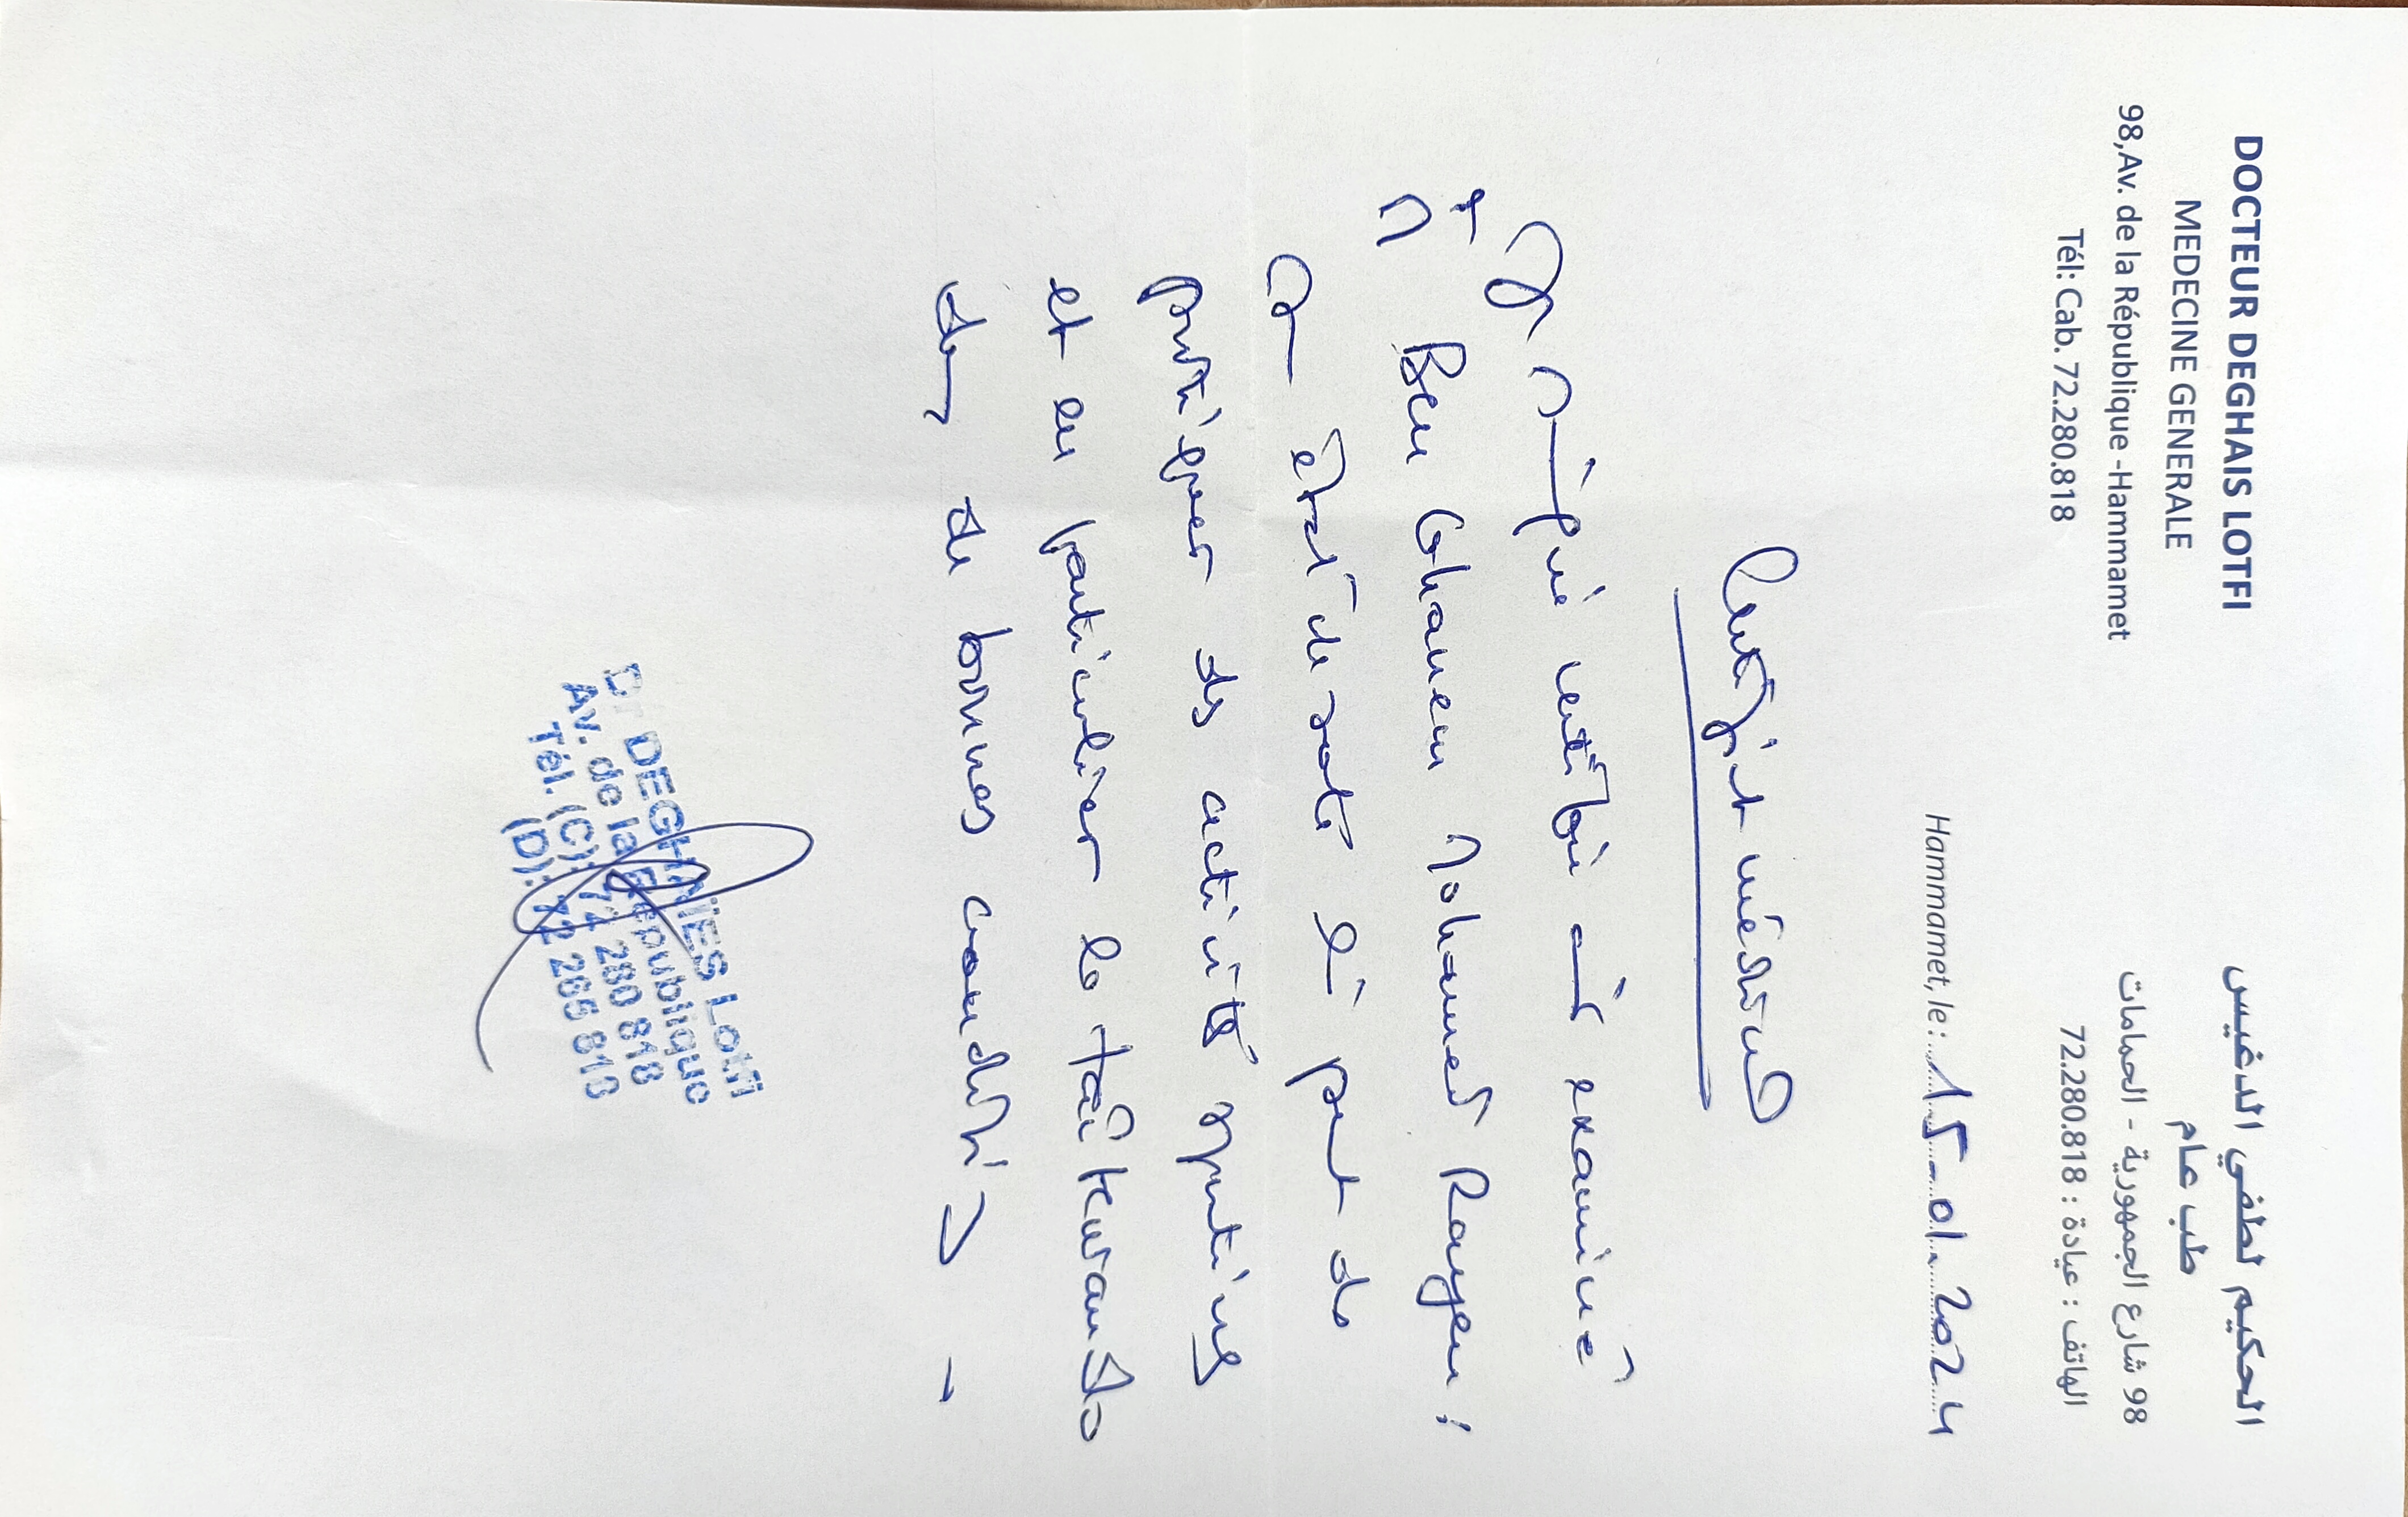 DOCTEUR DEGHAIS LOTFI
MEDECINE GENERALE
98,Av. de la République -Hammamet
Tél: Cab. 72.280.818
الحكيم لطفي الدغيس
طب عام
98 شارع الجمهورية - الحمامات
الهاتف : عيادة : 72.280.818
Hammamet, le : 15-01-2024
Certificat médical
Je certifie avoir examiné
Mr Ben Ghanem Mohamed Rayen :
état de santé lui permet de
pratiquer des activités sportives
et en particulier le taekwondo
dans de bonnes conditions
Dr DEGHAÏES Lotfi
Av. de la République
Tél. (C): 72 280 818
(D): 72 265 818